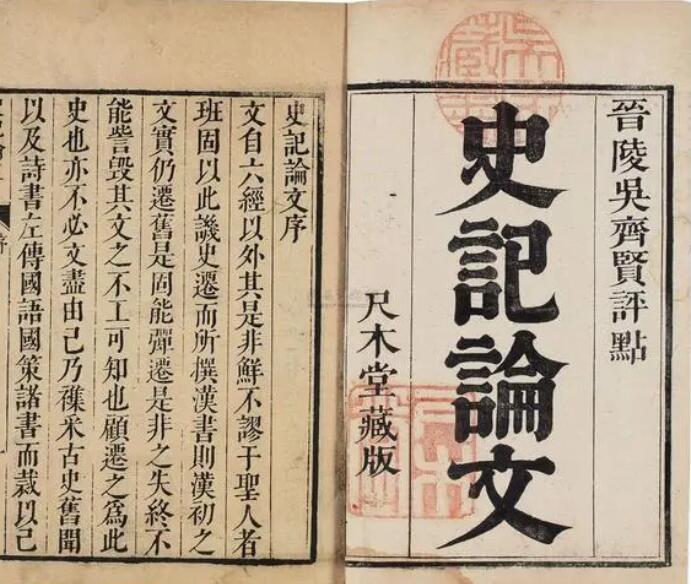 晉陵吳齊賢評點
史記論文
尺木堂藏版
史記論文序
文自六經以外其是非鮮不謬于聖人者
班固以此譏史遷而所撰漢書則漢初之
文實仍遷舊是固能彈遷是非之失終不
能訾毀其文之不工可知也顧遷之為此
史也亦不必文盡由己乃襍釆古史舊聞
以及詩書左傳國語國策諸書而裁以己